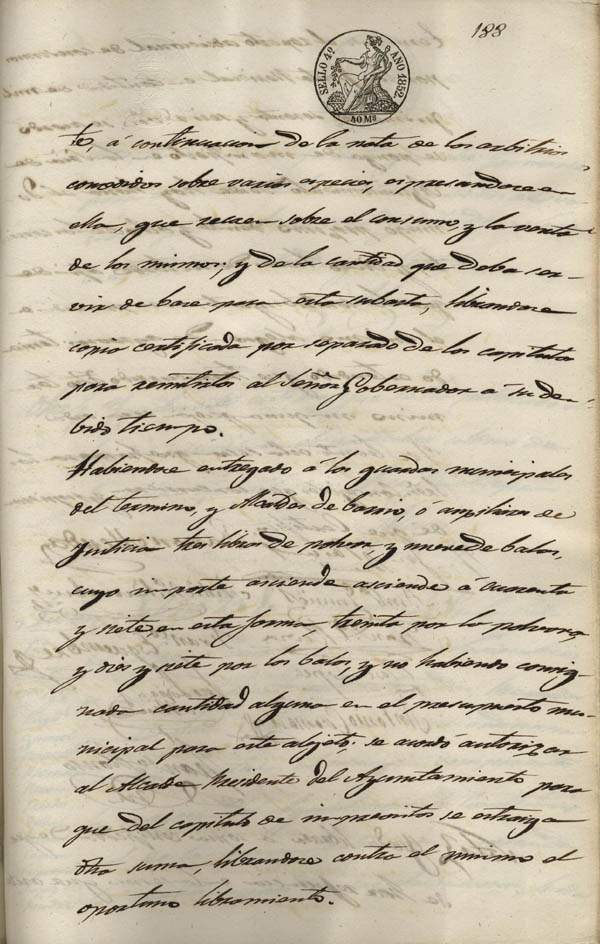 188
SELLO 4º AÑO 1852.
40 Ms
te, á continuacion de la nota de los arbitrios
concedidos sobre varias especies, espresandose en
ella, que recaen sobre el consumo, y la venta
de los mismos; y de la cantidad que deba ser-
vir de base para esta subasta, librandose
copia certificada por separado de los capitulos
para remitirlos al Señor Gobernador á su de-
bido tiempo.
Habiendose entregado á los guardas municipales
del termino, y Alcaldes de barrio, ó ausiliares de
Justicia tres libras de polvora, y nueve de balas,
cuyo importe asciende asciende á cuarenta
y siete, en esta forma, treinta por la polvora,
y diez y siete por las balas, y no habiendo consig-
nada cantidad alguna en el presupuesto mu-
nicipal para este objeto; se acordó autorizar
al Alcalde Presidente del Ayuntamiento para
que del capitulo de imprevistos se estraiga
dha suma, librandose contra el mismo el
oportuno libramiento.